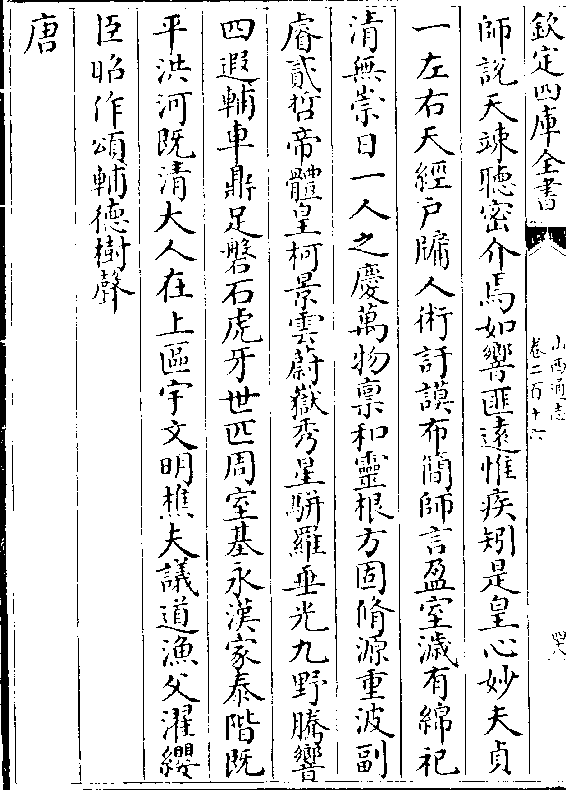 欽定四庫全書
山西通志
卷二百十六
四八
師說天竦聽密介焉如響匪遠惟疾矧是皇心妙夫貞
一左右天經戸牖人術訏謨布簡師言盈室濊有綿祀
清無崇日一人之慶萬物禀和靈根方固脩源重波副
睿貳哲帝體皇柯景雲蔚嶽秀星駢羅垂光九野騰響
四遐輔車鼎足磐石虎牙世匹周室基永漢家泰階既
平洪河既清大人在上區宇文明樵夫議道漁父濯纓
臣昭作頌輔德樹聲
唐